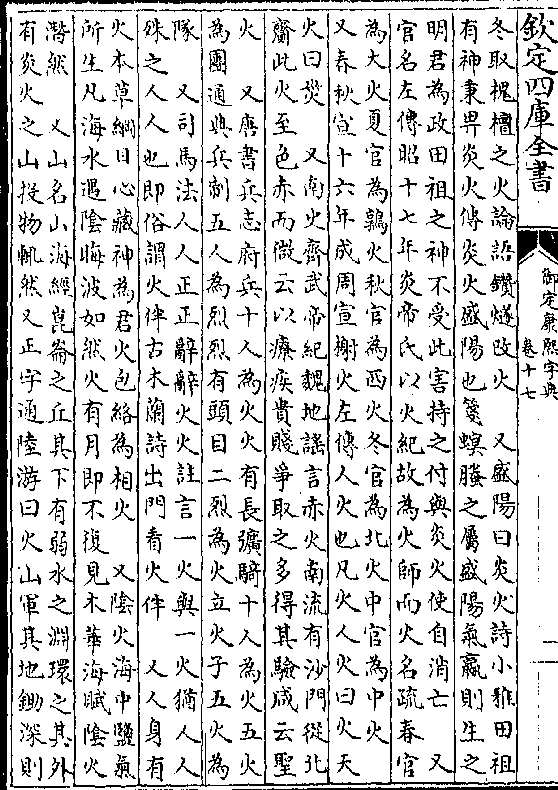 欽定四庫全書
御定康熙字典
卷十七
一
冬取槐檀之火論語鑽燧改火　又盛陽曰炎火詩小雅田祖
有神秉畀炎火傳炎火盛陽也箋螟螣之屬盛陽氣贏則生之
明君為政田祖之神不受此害持之付與炎火使自消亡　又
官名左傳昭十七年炎帝氏以火紀故為火師而火名疏春官
為大火夏官為鶉火秋官為西火冬官為北火中官為中火
又春秋宣十六年成周宣榭火左傳人火也凡火人火曰火天
火曰災　又南史齊武帝紀魏地謠言赤火南流有沙門從北
齎此火至色赤而微云以療疾貴賤爭取之多得其驗咸云聖
火　又唐書兵志府兵十人為火火有長彍騎十人為火五火
為團通典兵制五人為烈烈有頭目二烈為火立火子五火為
隊　又司馬法人人正正辭辭火火註言一火與一火猶人人
殊之人人也即俗謂火伴古木蘭詩出門看火伴　又人身有
火本草綱目心藏神為君火包絡為相火　又陰火海中鹽氣
所生凡海水遇陰晦波如然火有月即不復見木華海賦陰火
潛然　又山名山海經崑崙之丘其下有弱水之淵環之其外
有炎火之山投物輒然又正字通陸游曰火山軍其地鋤深則